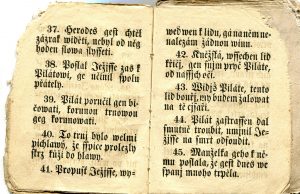 37. Herodes gest chtěl
zázrak widěti, nebyl od něg
hoden slowa slysseti.
38. Poslal Ježjsse zas k
Pilátowi, ge učinil spolu
přátely.
39. Pilát poručil gen bi-
čowati, korunou trnowou
geg korunowati.
40. To trnj bylo welmi
pichlawý, že sspice prolezly
skrz kůži do hlawy.
41. Propusť Ježjsse, wy-
wedwen k lidu, gá na něm ne-
nalezám žádnou winu.
42. Knežstwa, wssechen lid
křičj, gen s njm pryč Piláte,
od nassých očj.
43. Widjš Piláte, tento
lid bouřj, my budem žalowat
na tě cjsaři.
44. Pilát zastrassen dal
smutně troubit, umjnil Je-
žjsse na smrt odsoudit.
45. Manželka geho k ně-
mu poslala, že gest dnes we
spanj mnoho trpěla.